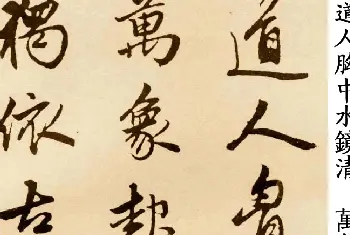 道人胸中水鏡清 萬
道人胷
萬象起
獨依古